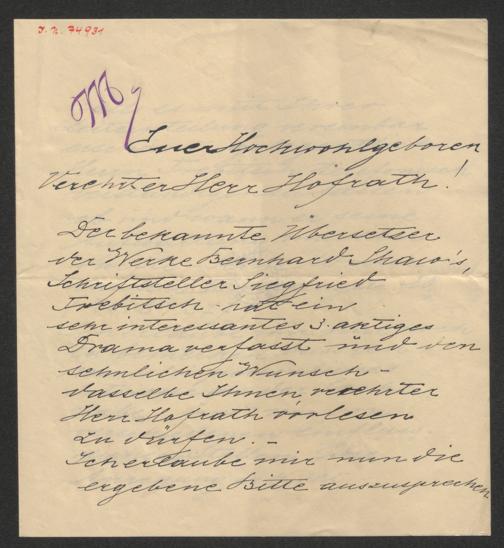 J. N. 74931
M
Euer Hochwohlgeboren
Verehrter Herr Hofrath!
Der bekannte Übersetzer
der Werke Bernhard Shaw's,
Schriftsteller Siegfried
Trebitsch hat ein
sehr interessantes 3. aktiges
Drama verfasst und den
sehnlichen Wunsch -
dasselbe Ihnen, verehrter
Herr Hofrath vorlesen
zu dürfen. -
Ich erlaube mir nun die
ergebene Bitte auszusprechen